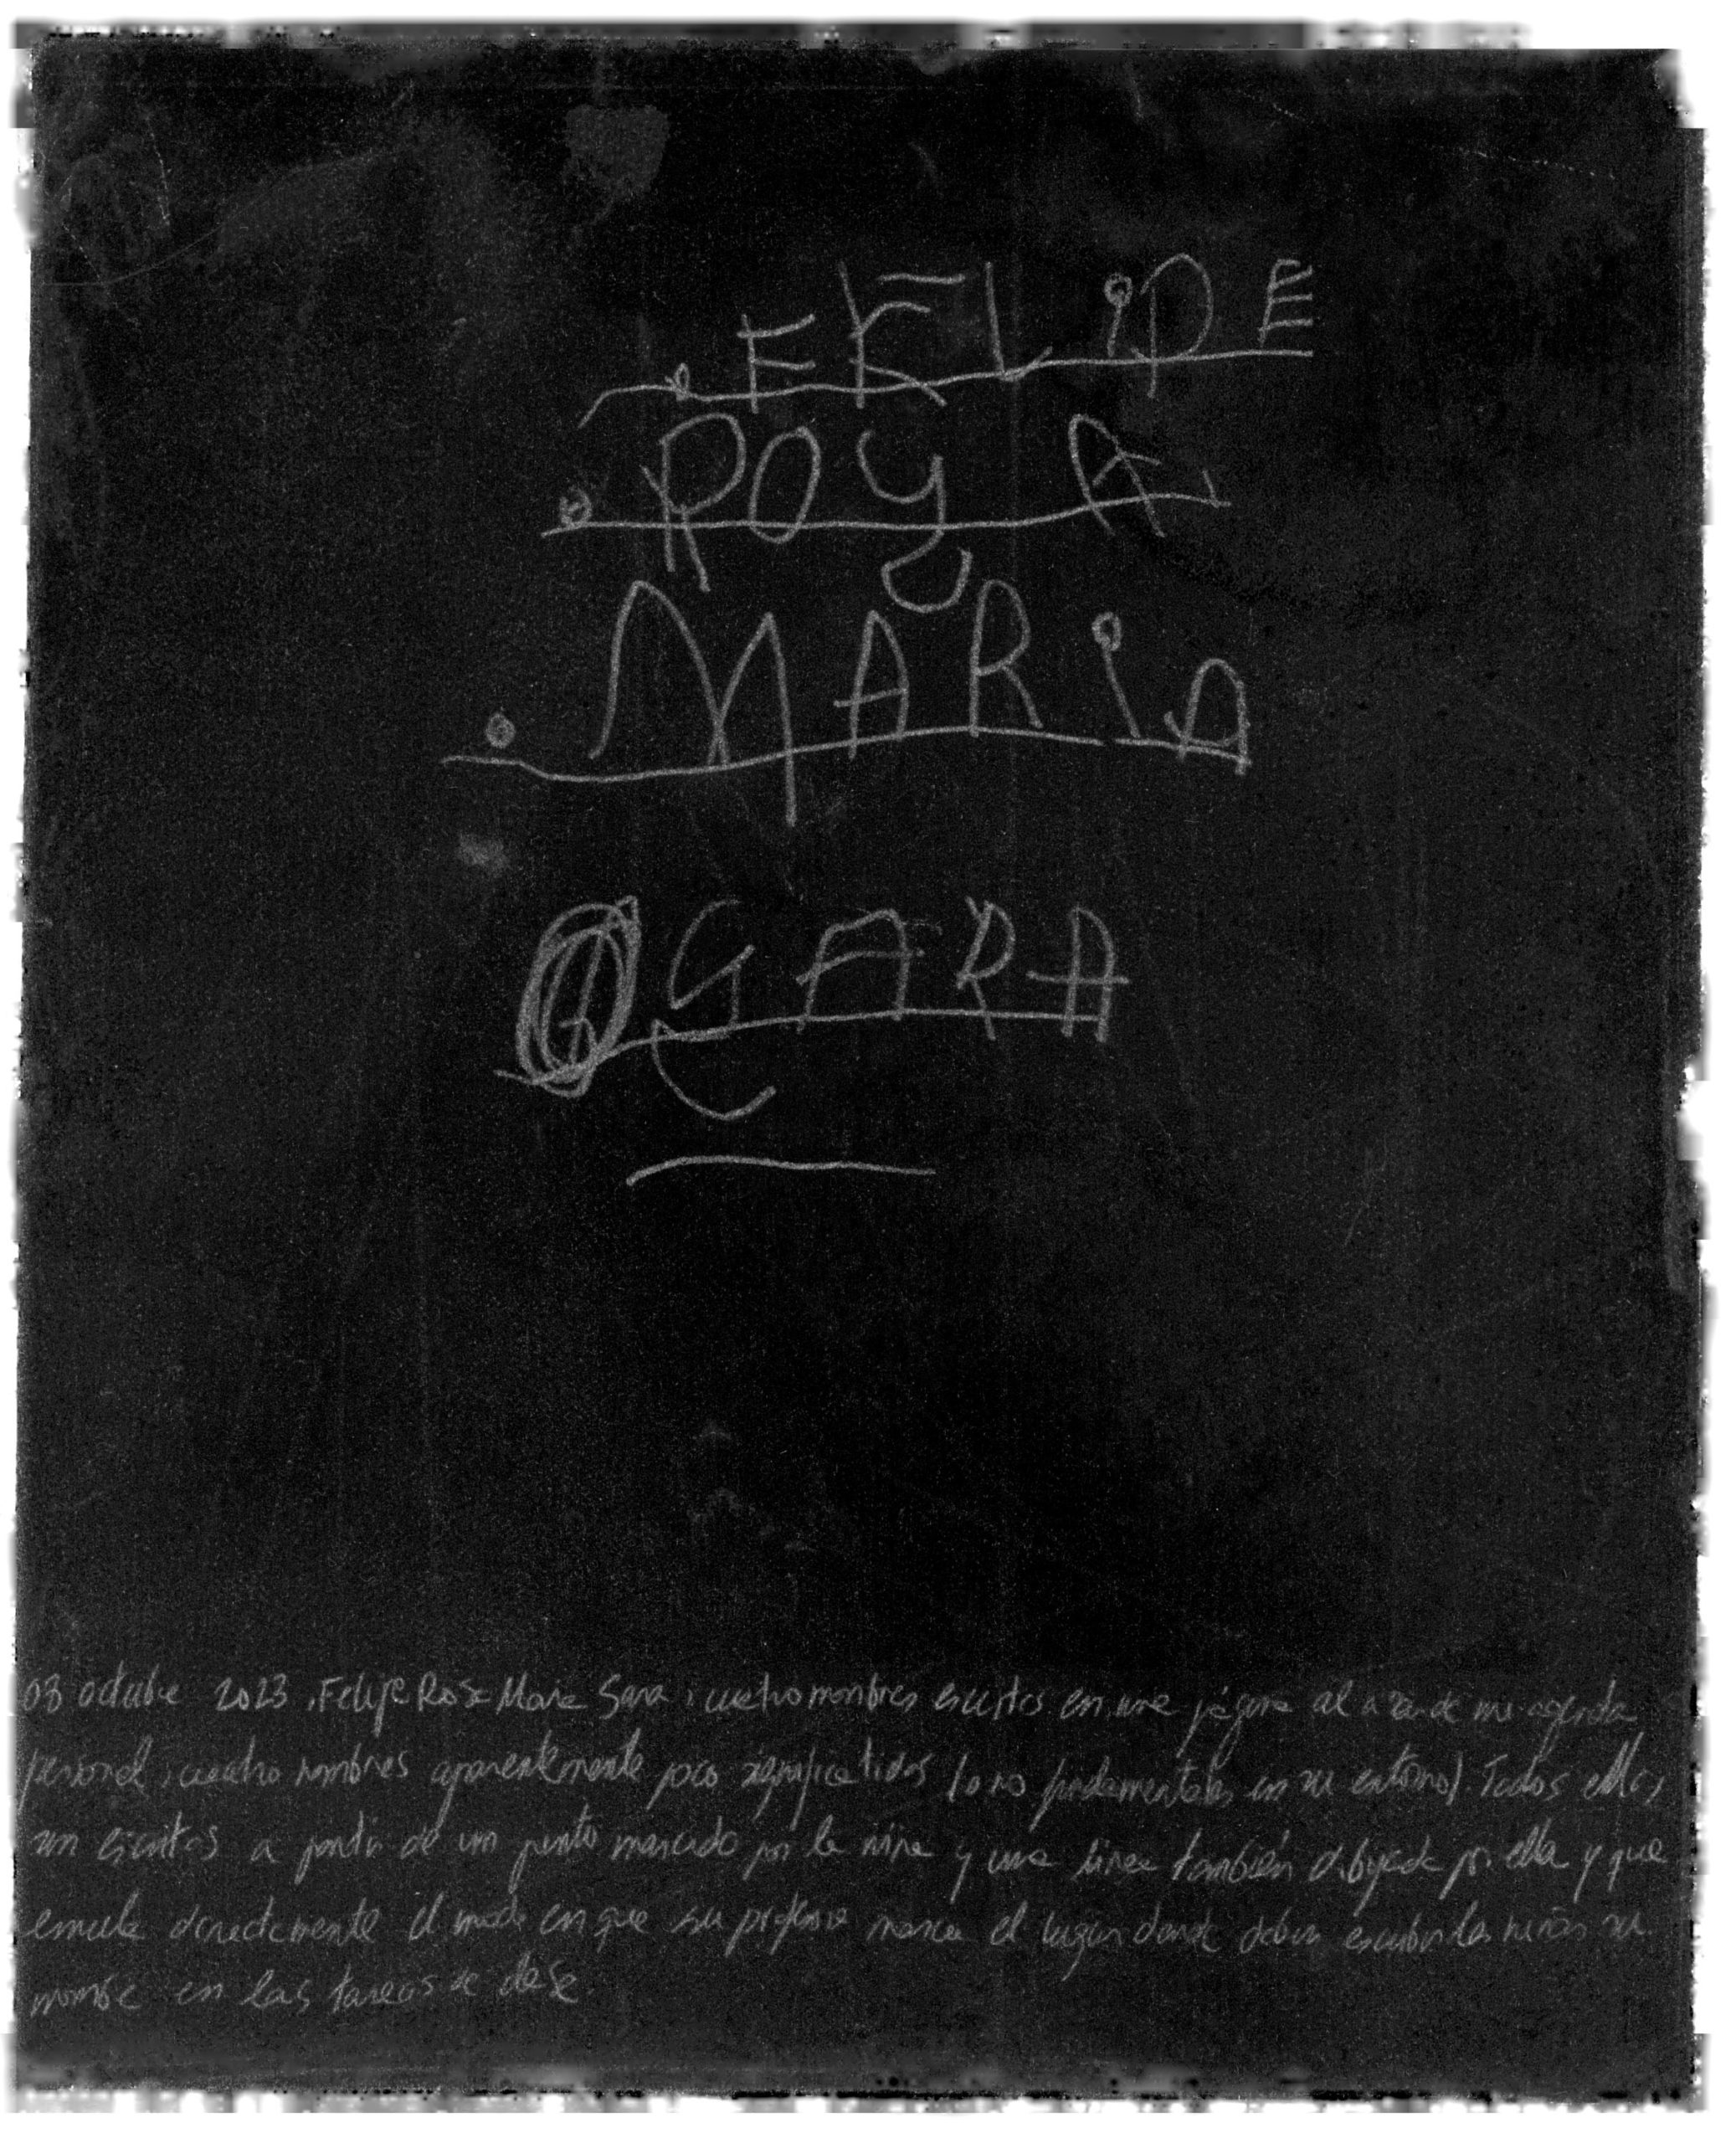 EFLiPE
ROYA
MARiA
GARA
03 octubre 2023. Felipe Rosa Maria Sara, cuatro nombres escritos en una página al azar de mi agenda
personal, cuatro nombres aparentemente poco significativos (o no fundamentales en su entorno). Todos ellos
son escritos a partir de un punto marcado por la niña y una línea también dibujada por ella y que
emula directamente el modo en que su profesora marca el lugar donde deben escribir los niños su
nombre en las tareas de clase.